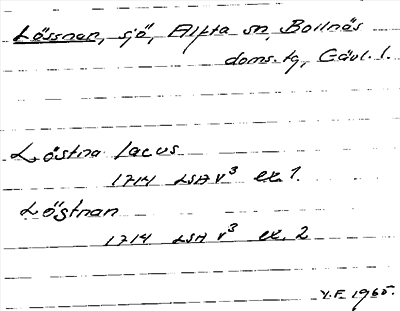 Lössnan, sjö, Alfta sn, Bollnäs
doms.tg, Gävl. l.
Löstna lacus
1714 LSA V³ ex. 1.
Löstnan
1714 LSA V³ ex. 2
V.E. 1965.